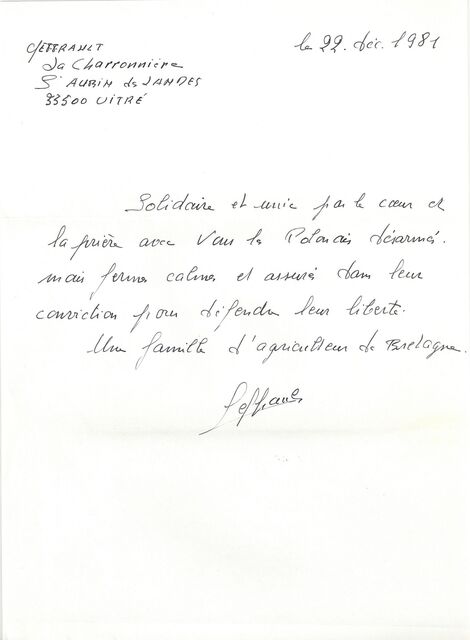 GEFFRAULT
le 22. déc. 1981
La Charronnière
St AUBIN des LANDES
35500 VITRÉ
Solidaire et unie par le cœur et
la prière avec Vous les Polonais désarmés.
mais fermes calmes et assurés dans leur
conviction pour défendre leur liberté.
Une famille d'agriculteur de Bretagne.